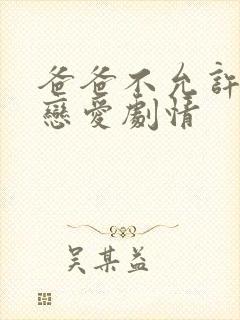 爸爸不允許
戀愛劇情
吳某益